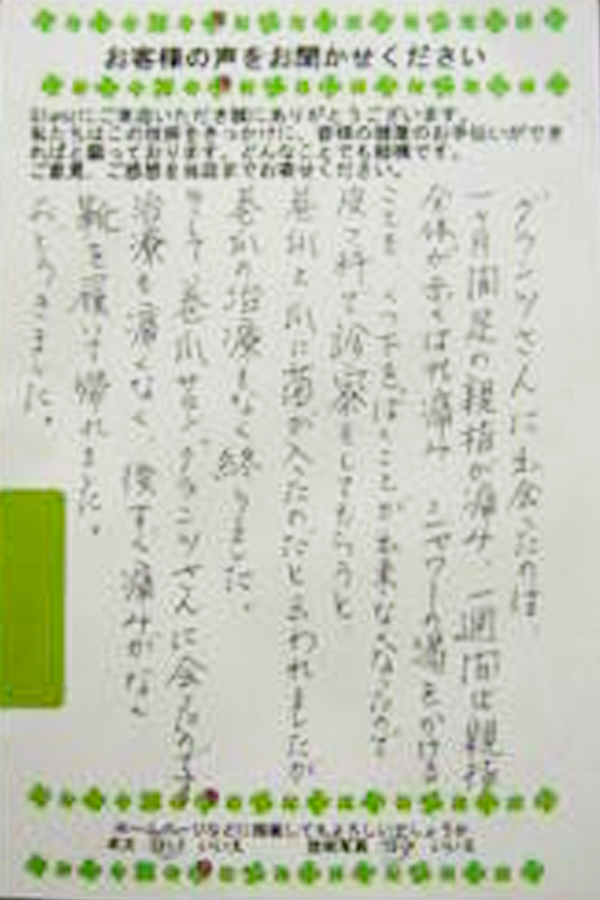 お客様の声をお聞かせください
にご来店いただき誠にありがとうございます。
私たちはこの技術をきっかけに、皆様の健康のお手伝いができ
ればと願っております。どんなことでも結構です。
ご意見、ご感想を当店までお寄せください。
グランツさんに出会ったのは
一ヶ月間足の親指が痛み、一週間は親指
全体が赤くはれ痛み シャワーの湯をかける
ことも くつ下をはくことが出来なくなったので
皮フ科で診察をしてもらうと
巻爪と爪に菌が入ったのだと言われましたが
巻爪の治療もなく終りました。
そして、巻爪サロングランツさんに会ったのです
治療も痛くなく、後すぐ痛みがなく
靴を履いて帰れました。
おどろきました。
ホームページなどに掲載してもよろしいでしょうか
はい いいえ
はい いいえ